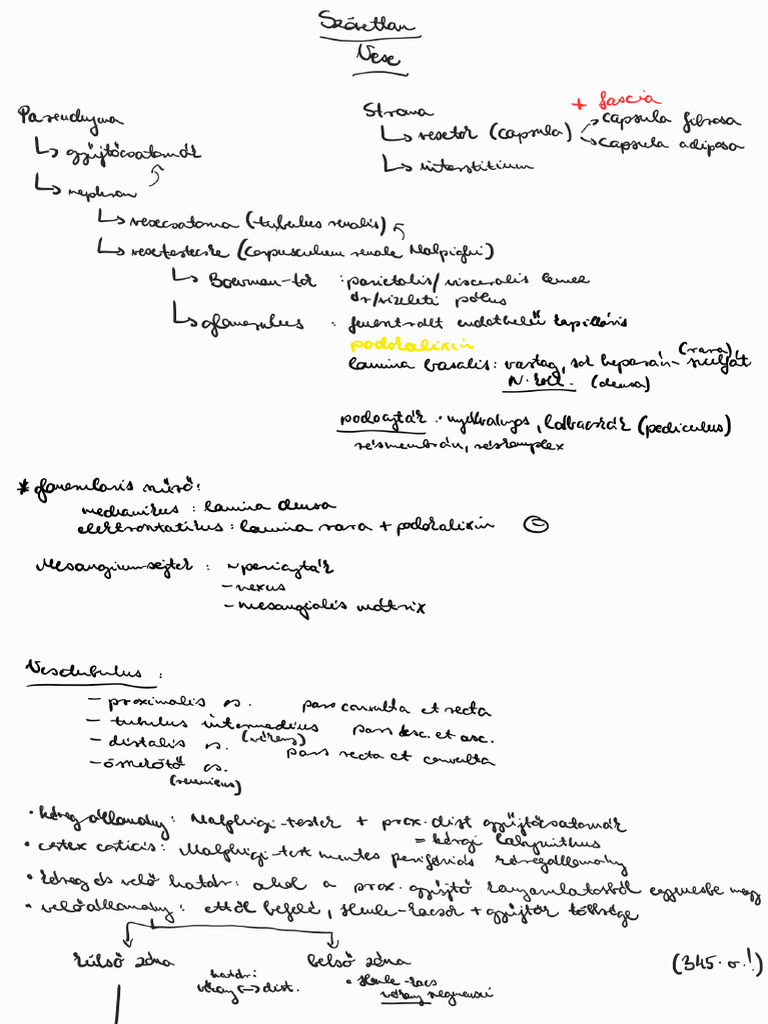 Szövettan
Vese
Parenchyma
↳ gyűjtőcsatornák
↳ nephron
↳ vesecsatorna (tubulus renalis)
↳ vesetestecske (corpusculum renale Malpighi)
↳ Bowman-tok : parietalis/visceralis lemez
ér/vizeleti pólus
↳ glomerulus : fenestrált endothelű kapilláris
podokalixin
lamina basalis: vastag, sok heparán-szulfát
(rara)
(densa)
podocyták : nyúlványos, lábacskák (pediculus)
résmembrán, réskomplex
Stroma
↳ vesetok (capsula)
+ fascia
capsula fibrosa
capsula adiposa
↳ interstitium
* glomerularis szűrő:
mechanikus : lamina densa
elektrostatikus : lamina rara + podokalixin ⊖
Mesangiumsejtek : ~ pericyták
- nexus
- mesangialis mátrix
Vesetubulus :
- proximalis cs. pars convulta et recta
- tubulus intermedius pars desc. et asc.
(vékony)
- distalis cs. pars recta et convulta
- összekötő cs.
• kéregállomány: Malphigi-testek + prox. dist gyűjtőcsatornák
= kérgi labyrinthus
• cortex corticis: Malphigi-test mentes perifériás kéregállomány
• kéreg és velő határ: ahol a prox. gyűjtő kanyarulatosból egyenesbe megy
• velőállomány: ettől befelé, Henle-kacsok + gyűjtők többsége
külső zóna
határ:
vékony ↔ dist.
belső zóna
• Henle-kacs
vékony szegmensei
(345. o.!)